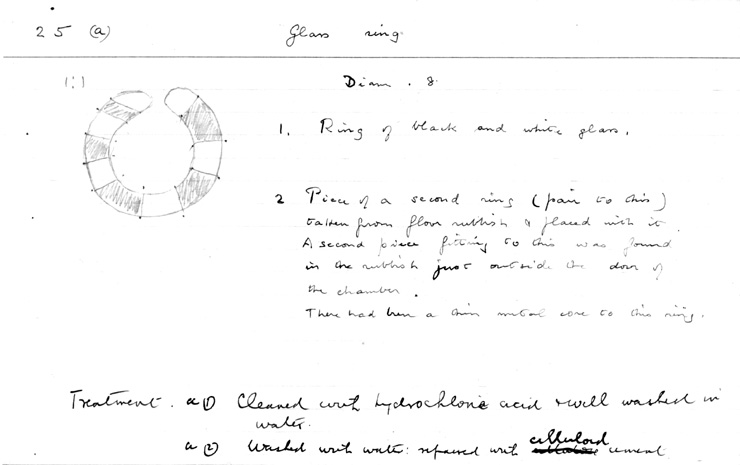 25 (a) Glass ring.
(1:1) Diam . 8.
1. Ring of black and white glass.
2 Piece of a second ring (pair to this)
taken from floor rubbish & placed with it.
A second piece fitting to this was found
in the rubbish just outside the door of
the chamber.
There had been a thin metal core to this ring.
Treatment. a (1) Cleaned with hydrochloric acid & well washed in
water.
a (2) Washed with water: repaired with celluloid cement